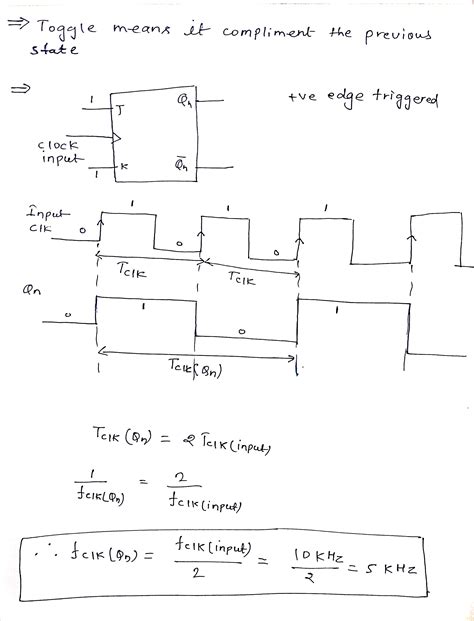 ⇒ Toggle means it compliment the previous
state
⇒
1 J Qn
+ve edge triggered
clock
input
1 K Q̅n
Input
Clk 0 1 0 1 0 1
TCLK TCLK
Qn
0 1 0 1
TClK(Qn)
TClK(Qn) = 2 TClK(input)
1/fClK(Qn) = 2/fClK(input)
∴ fClK(Qn) = fClK(input)/2 = 10 KHz/2 = 5 KHz